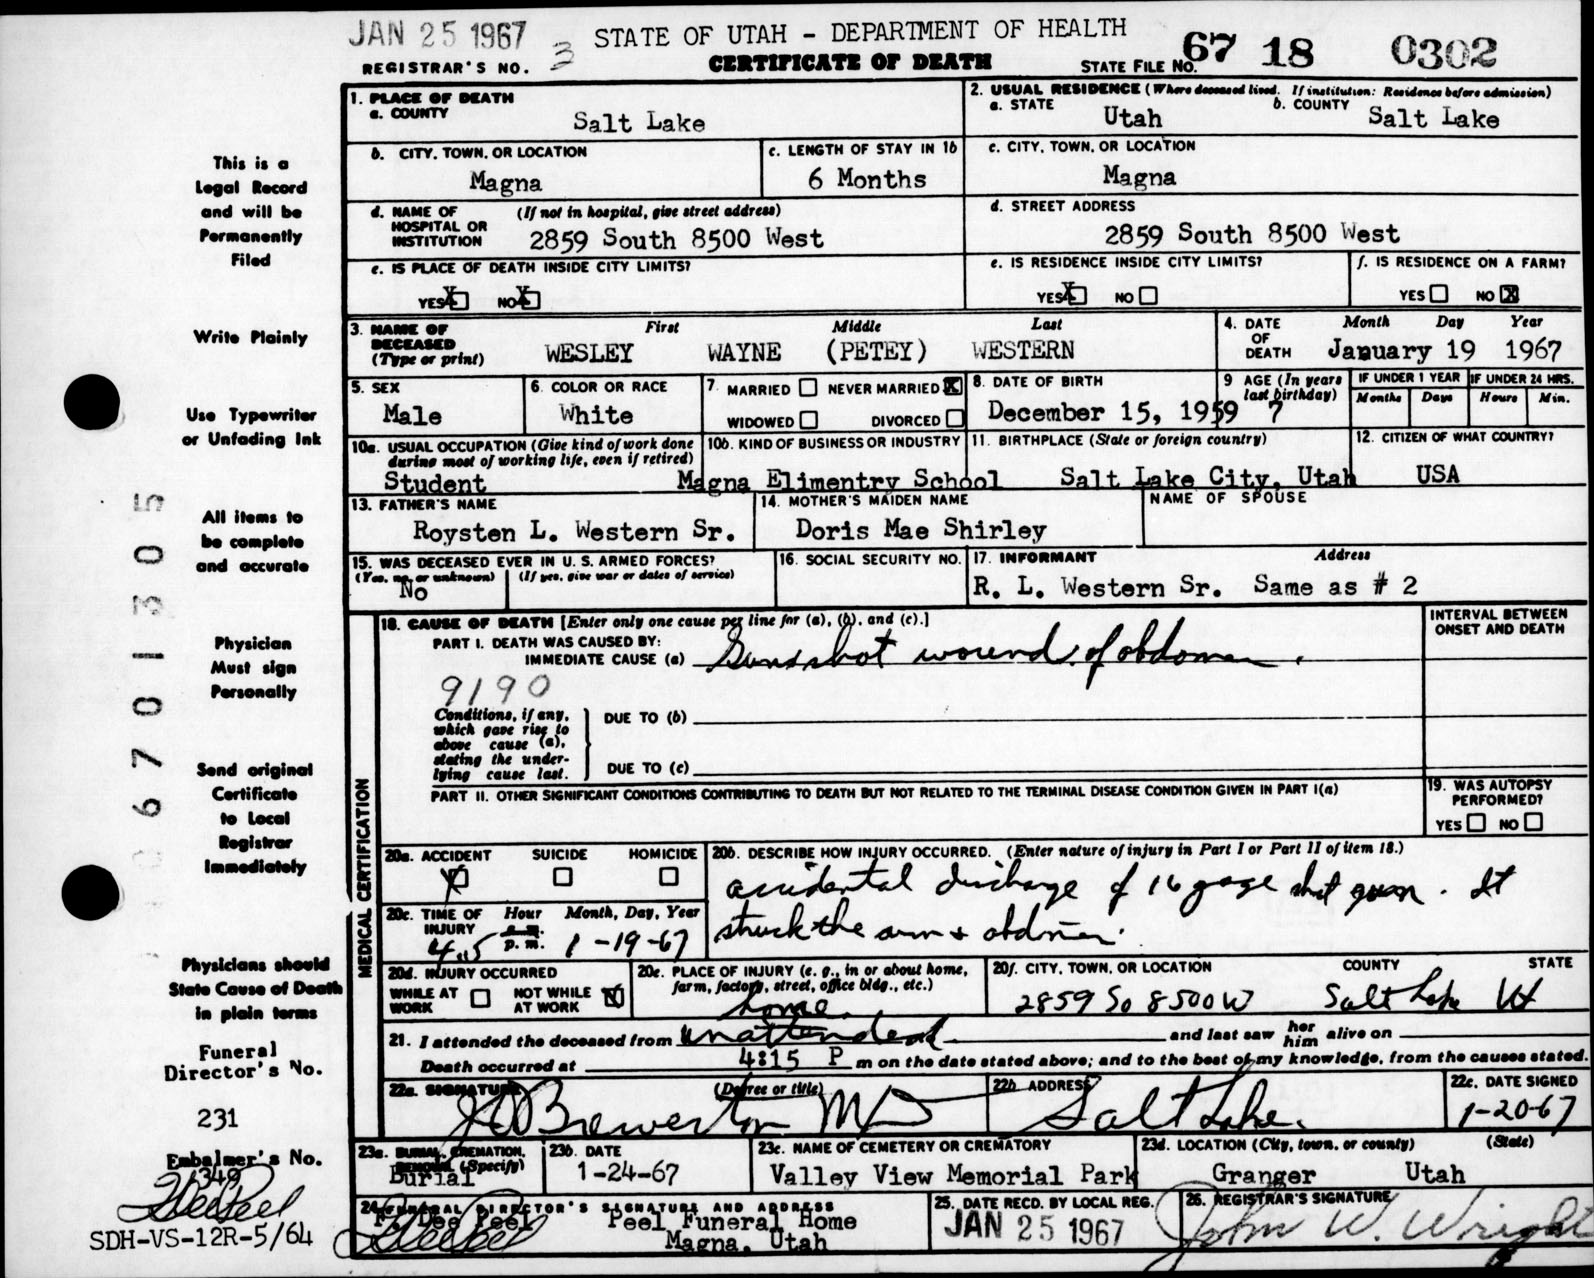 JAN 25 1967
STATE OF UTAH - DEPARTMENT OF HEALTH
REGISTRAR'S NO. 3
CERTIFICATE OF DEATH
STATE FILE NO. 67 18 0302
This is a
Legal Record
and will be
Permanently
Filed
Write Plainly
Use Typewriter
or Unfading Ink
All items to
be complete
and accurate
Physician
Must sign
Personally
Send original
Certificate
to Local
Registrar
Immediately
Physicians should
State Cause of Death
in plain terms
Funeral
Director's No.
231
Embalmer's No.
349
SDH-VS-12R-5/64
6701305
1. PLACE OF DEATH
a. COUNTY
Salt Lake
2. USUAL RESIDENCE (Where deceased lived. If institution: Residence before admission)
a. STATE
Utah
b. COUNTY
Salt Lake
b. CITY, TOWN, OR LOCATION
Magna
c. LENGTH OF STAY IN 1b
6 Months
c. CITY, TOWN, OR LOCATION
Magna
d. NAME OF (If not in hospital, give street address)
HOSPITAL OR
INSTITUTION
2859 South 8500 West
d. STREET ADDRESS
2859 South 8500 West
e. IS PLACE OF DEATH INSIDE CITY LIMITS?
YES X NO X
e. IS RESIDENCE INSIDE CITY LIMITS?
YES X NO
f. IS RESIDENCE ON A FARM?
YES NO X
3. NAME OF
DECEASED
(Type or print)
First Middle Last
WESLEY WAYNE (PETEY) WESTERN
4. DATE
OF
DEATH
Month Day Year
January 19 1967
5. SEX
Male
6. COLOR OR RACE
White
7. MARRIED NEVER MARRIED X
WIDOWED DIVORCED
8. DATE OF BIRTH
December 15, 1959
9 AGE (In years
last birthday)
7
IF UNDER 1 YEAR
Months Days
IF UNDER 24 HRS.
Hours Min.
10a. USUAL OCCUPATION (Give kind of work done
during most of working life, even if retired)
Student
10b. KIND OF BUSINESS OR INDUSTRY
Magna Elimentry School
11. BIRTHPLACE (State or foreign country)
Salt Lake City, Utah
12. CITIZEN OF WHAT COUNTRY?
USA
13. FATHER'S NAME
Roysten L. Western Sr.
14. MOTHER'S MAIDEN NAME
Doris Mae Shirley
NAME OF SPOUSE
15. WAS DECEASED EVER IN U. S. ARMED FORCES?
(Yes, no, or unknown) (If yes, give war or dates of service)
No
16. SOCIAL SECURITY NO.
17. INFORMANT Address
R. L. Western Sr. Same as # 2
MEDICAL CERTIFICATION
18. CAUSE OF DEATH [Enter only one cause per line for (a), (b), and (c).]
INTERVAL BETWEEN
ONSET AND DEATH
PART I. DEATH WAS CAUSED BY:
IMMEDIATE CAUSE (a) Gunshot wound of abdomen.
9190
Conditions, if any,
which gave rise to
above cause (a),
stating the under-
lying cause last.
DUE TO (b)
DUE TO (c)
PART II. OTHER SIGNIFICANT CONDITIONS CONTRIBUTING TO DEATH BUT NOT RELATED TO THE TERMINAL DISEASE CONDITION GIVEN IN PART I(a)
19. WAS AUTOPSY
PERFORMED?
YES NO
20a. ACCIDENT SUICIDE HOMICIDE
X
20b. DESCRIBE HOW INJURY OCCURRED. (Enter nature of injury in Part I or Part II of item 18.)
accidental discharge of 16 gage shot gun. It
struck the arm + abdomen.
20c. TIME OF
INJURY
Hour Month, Day, Year
a. m.
p. m.
1-19-67
20d. INJURY OCCURRED
WHILE AT
WORK
NOT WHILE
AT WORK X
20e. PLACE OF INJURY (e. g., in or about home,
farm, factory, street, office bldg., etc.)
home.
20f. CITY, TOWN, OR LOCATION COUNTY STATE
2859 So 8500 W Salt Lake Ut
21. I attended the deceased from unattended and last saw her him alive on
Death occurred at 4:15 P m on the date stated above; and to the best of my knowledge, from the causes stated.
22a. SIGNATURE (Degree or title)
Brewerton MD
22b ADDRESS
Salt Lake.
22c. DATE SIGNED
1-20-67
23a. BURIAL, CREMATION,
REMOVAL (Specify)
Burial
23b. DATE
1-24-67
23c. NAME OF CEMETERY OR CREMATORY
Valley View Memorial Park
23d. LOCATION (City, town, or county) (State)
Granger Utah
24. FUNERAL DIRECTOR'S SIGNATURE AND ADDRESS
Dee Peel Peel Funeral Home
Magna, Utah
25. DATE RECD. BY LOCAL REG.
JAN 25 1967
26. REGISTRAR'S SIGNATURE
John W. Wright